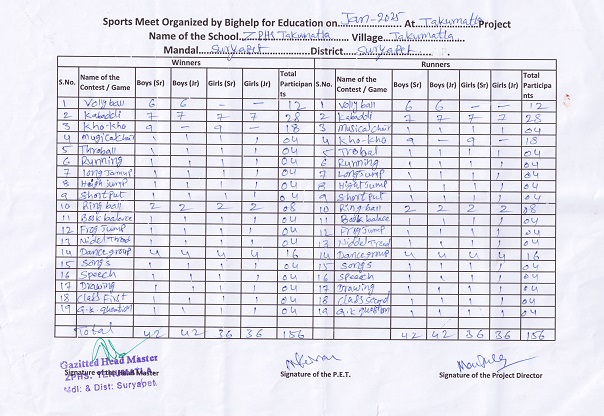 Sports Meet Organized by Bighelp for Education on Jan-2025 At Takumatla Project
Name of the School ZPHS Takumatla Village Takumatla
Mandal Suryapet District Suryapet
Winners Runners
S.No. Name of the Contest / Game Boys (Sr) Boys (Jr) Girls (Sr) Girls (Jr) Total Participants S.No. Name of the Contest / Game Boys (Sr) Boys (Jr) Girls (Sr) Girls (Jr) Total Participants
1 Vollyball 6 6 - - 12 1 Vollyball 6 6 - - 12
2 Kabaddi 7 7 7 7 28 2 Kabaddi 7 7 7 7 28
3 Kho-kho 9 - 9 - 18 3 Musical chair 1 1 1 1 04
4 Mugical chair 1 1 1 1 04 4 Kho-kho 9 - 9 - 18
5 Throball 1 1 1 1 04 5 Trobal 1 1 1 1 04
6 Running 1 1 1 1 04 6 Running 1 1 1 1 04
7 Long Jamup 1 1 1 1 04 7 Long Jump 1 1 1 1 04
8 High Jump 1 1 1 1 04 8 Hight Jump 1 1 1 1 04
9 Short put 1 1 1 1 04 9 Short put 1 1 1 1 04
10 Ring ball 2 2 2 2 08 10 Ring ball 2 2 2 2 08
11 Book balance 1 1 1 1 04 11 Book balance 1 1 1 1 04
12 Frog Jump 1 1 1 1 04 12 Frog Jump 1 1 1 1 04
13 Niddel Thread 1 1 1 1 04 13 Niddel Tread 1 1 1 1 04
14 Dance group 4 4 4 4 16 14 Dance group 4 4 4 4 16
15 Songs 1 1 1 1 04 15 Songs 1 1 1 1 04
16 Speech 1 1 1 1 04 16 Speech 1 1 1 1 04
17 Drawing 1 1 1 1 04 17 Drawing 1 1 1 1 04
18 Class First 1 1 1 1 04 18 Class Second 1 1 1 1 04
19 G.K. question 1 1 1 1 04 19 G.K question 1 1 1 1 04
Total 42 42 36 36 156 42 42 36 36 156
Gazitted Head Master
Signature of the Head Master Signature of the P.E.T. Signature of the Project Director
ZPHS. TEKUMATLA
Mdl: & Dist: Suryapet.